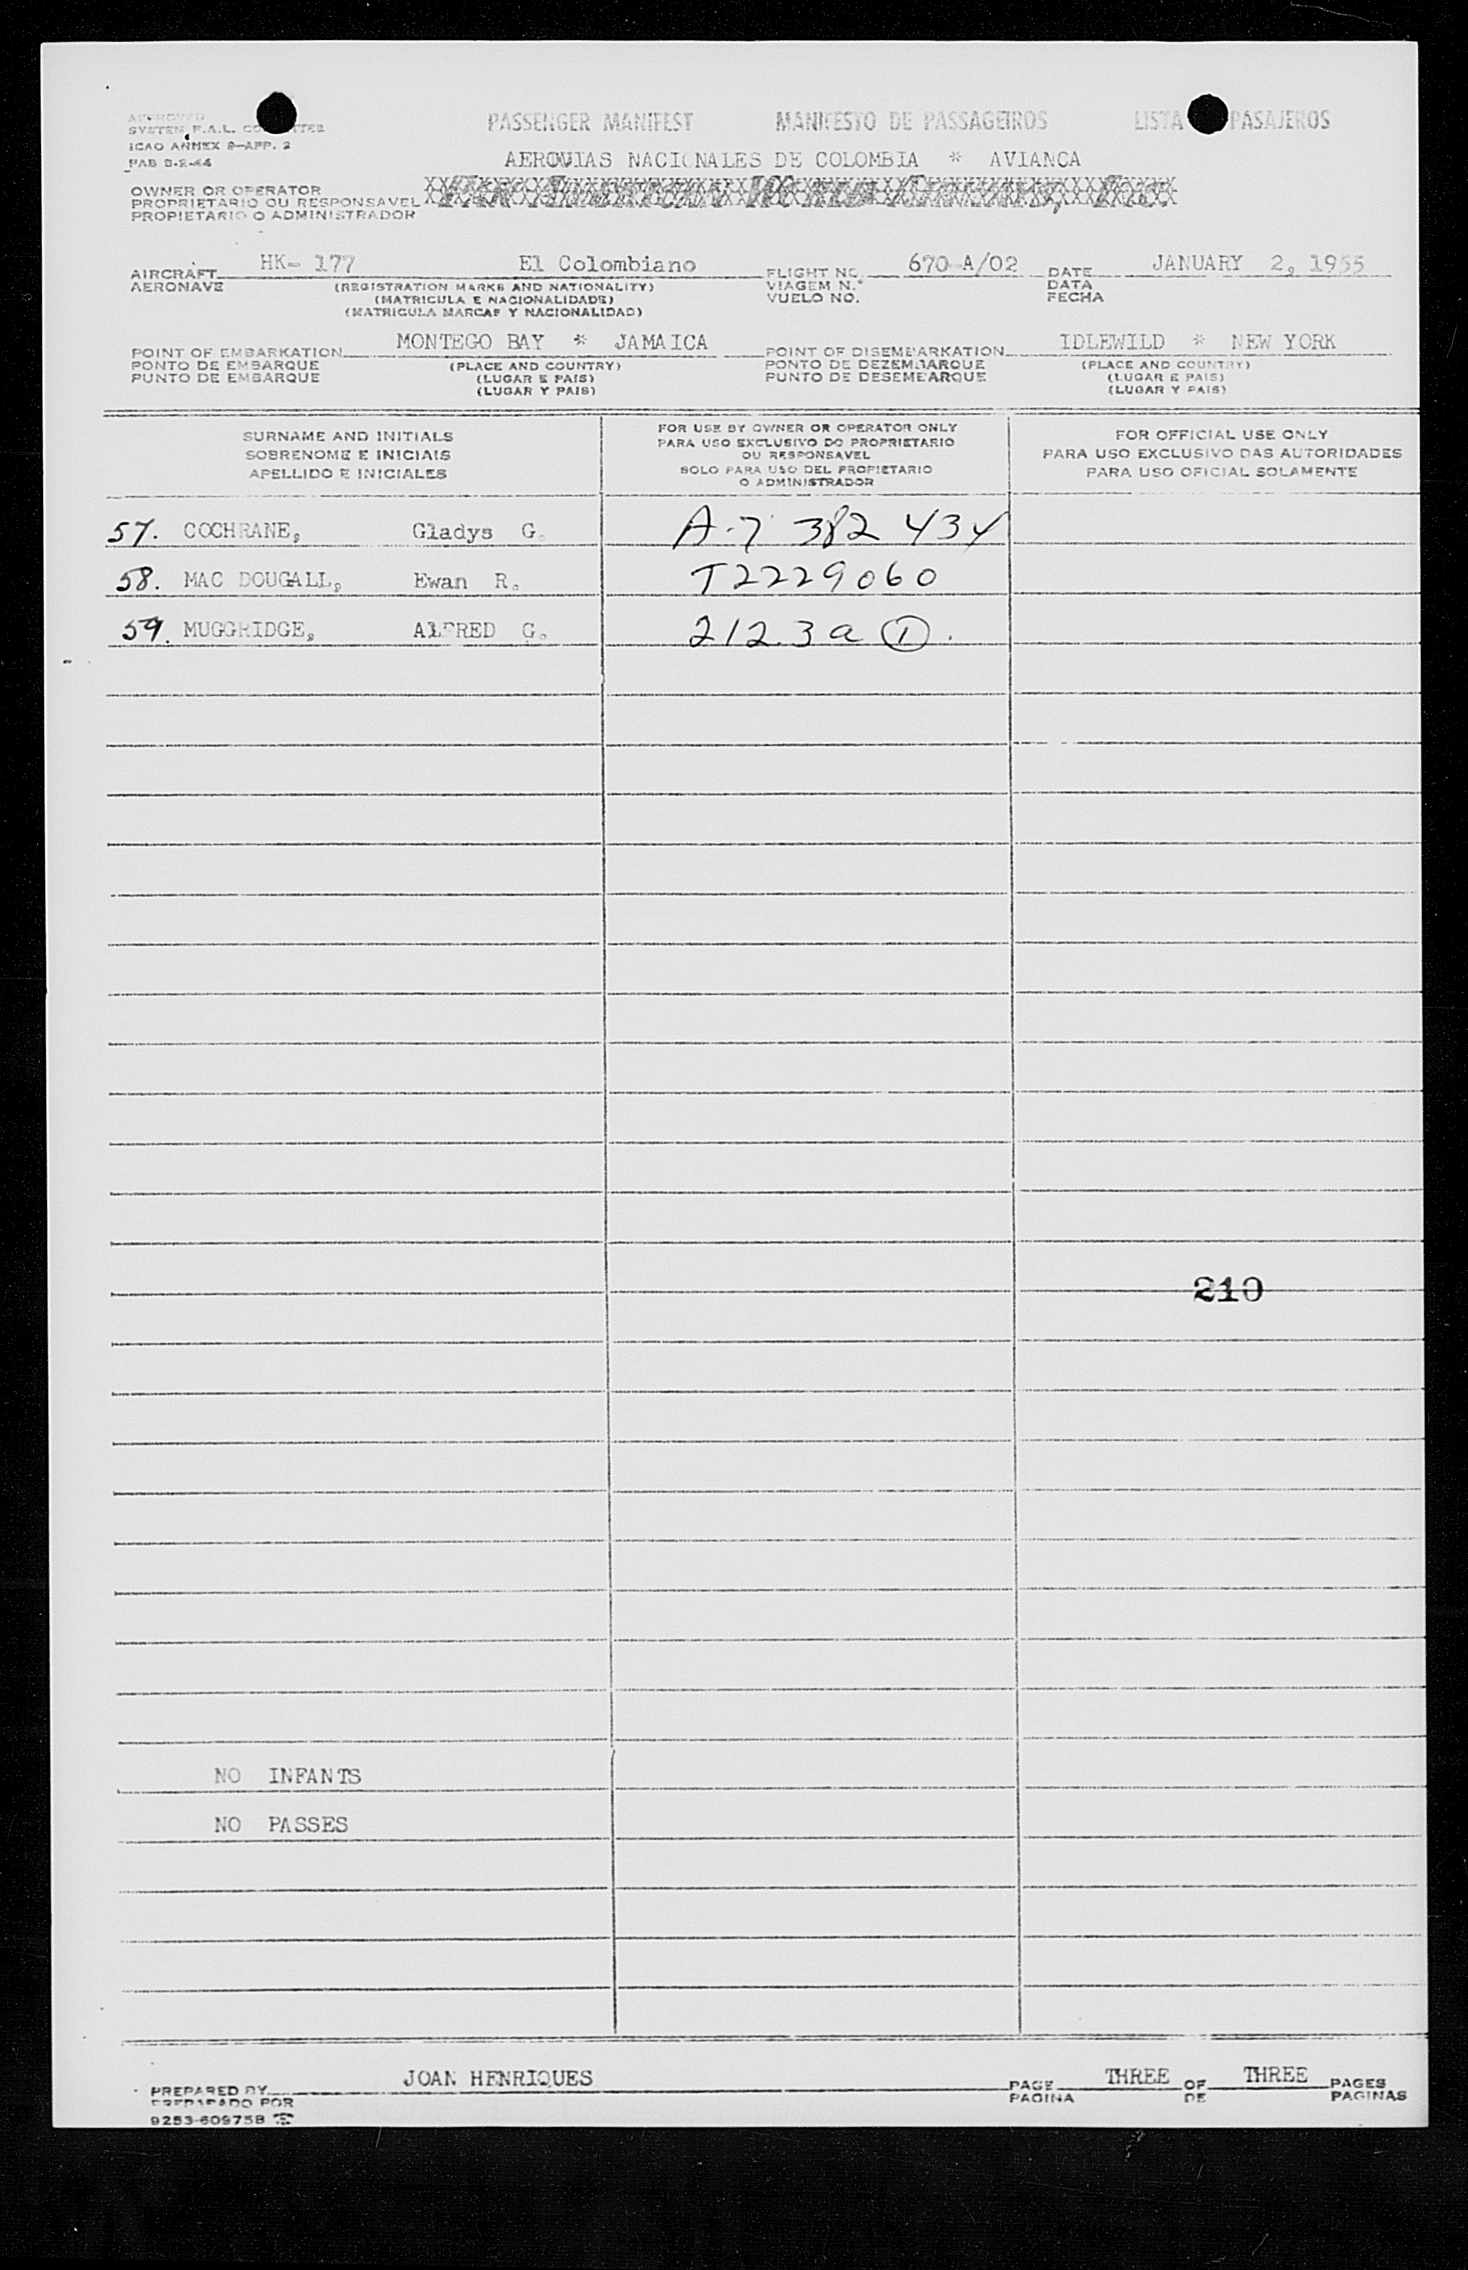 PASSENGER MANIFEST MANIFESTO DE PASSAGEIROS LISTA PASAJEROS
APPROVED
SYSTEM F.A.L. COMMITTEE
ICAO ANNEX 9—APP. 2
PAB 8-2-44
AEROVIAS NACIONALES DE COLOMBIA * AVIANCA
OWNER OR OPERATOR
PROPRIETARIO OU RESPONSAVEL
PROPIETARIO O ADMINISTRADOR
AIRCRAFT HK- 177 El Colombiano FLIGHT NO. 670-A/02 DATE JANUARY 2, 1955
AERONAVE (REGISTRATION MARKS AND NATIONALITY) VIAGEM N.° DATA
(MATRICULA E NACIONALIDADE) VUELO NO. FECHA
(MATRICULA MARCAS Y NACIONALIDAD)
POINT OF EMBARKATION MONTEGO BAY * JAMAICA POINT OF DISEMBARKATION IDLEWILD * NEW YORK
PONTO DE EMBARQUE (PLACE AND COUNTRY) PONTO DE DEZEMBARQUE (PLACE AND COUNTRY)
PUNTO DE EMBARQUE (LUGAR E PAIS) PUNTO DE DESEMBARQUE (LUGAR E PAIS)
(LUGAR Y PAIS) (LUGAR Y PAIS)
SURNAME AND INITIALS
SOBRENOME E INICIAIS
APELLIDO E INICIALES
FOR USE BY OWNER OR OPERATOR ONLY
PARA USO EXCLUSIVO DO PROPRIETARIO
OU RESPONSAVEL
SOLO PARA USO DEL PROPIETARIO
O ADMINISTRADOR
FOR OFFICIAL USE ONLY
PARA USO EXCLUSIVO DAS AUTORIDADES
PARA USO OFICIAL SOLAMENTE
57. COCHRANE, Gladys G. A-7 382 434
58. MAC DOUGALL, Ewan R. T2229060
59. MUGGRIDGE, AlFRED G. 212.3a (1).
210
NO INFANTS
NO PASSES
PREPARED BY JOAN HENRIQUES PAGE THREE OF THREE PAGES
PREPARADO POR PAGINA DE PAGINAS
9253-609758